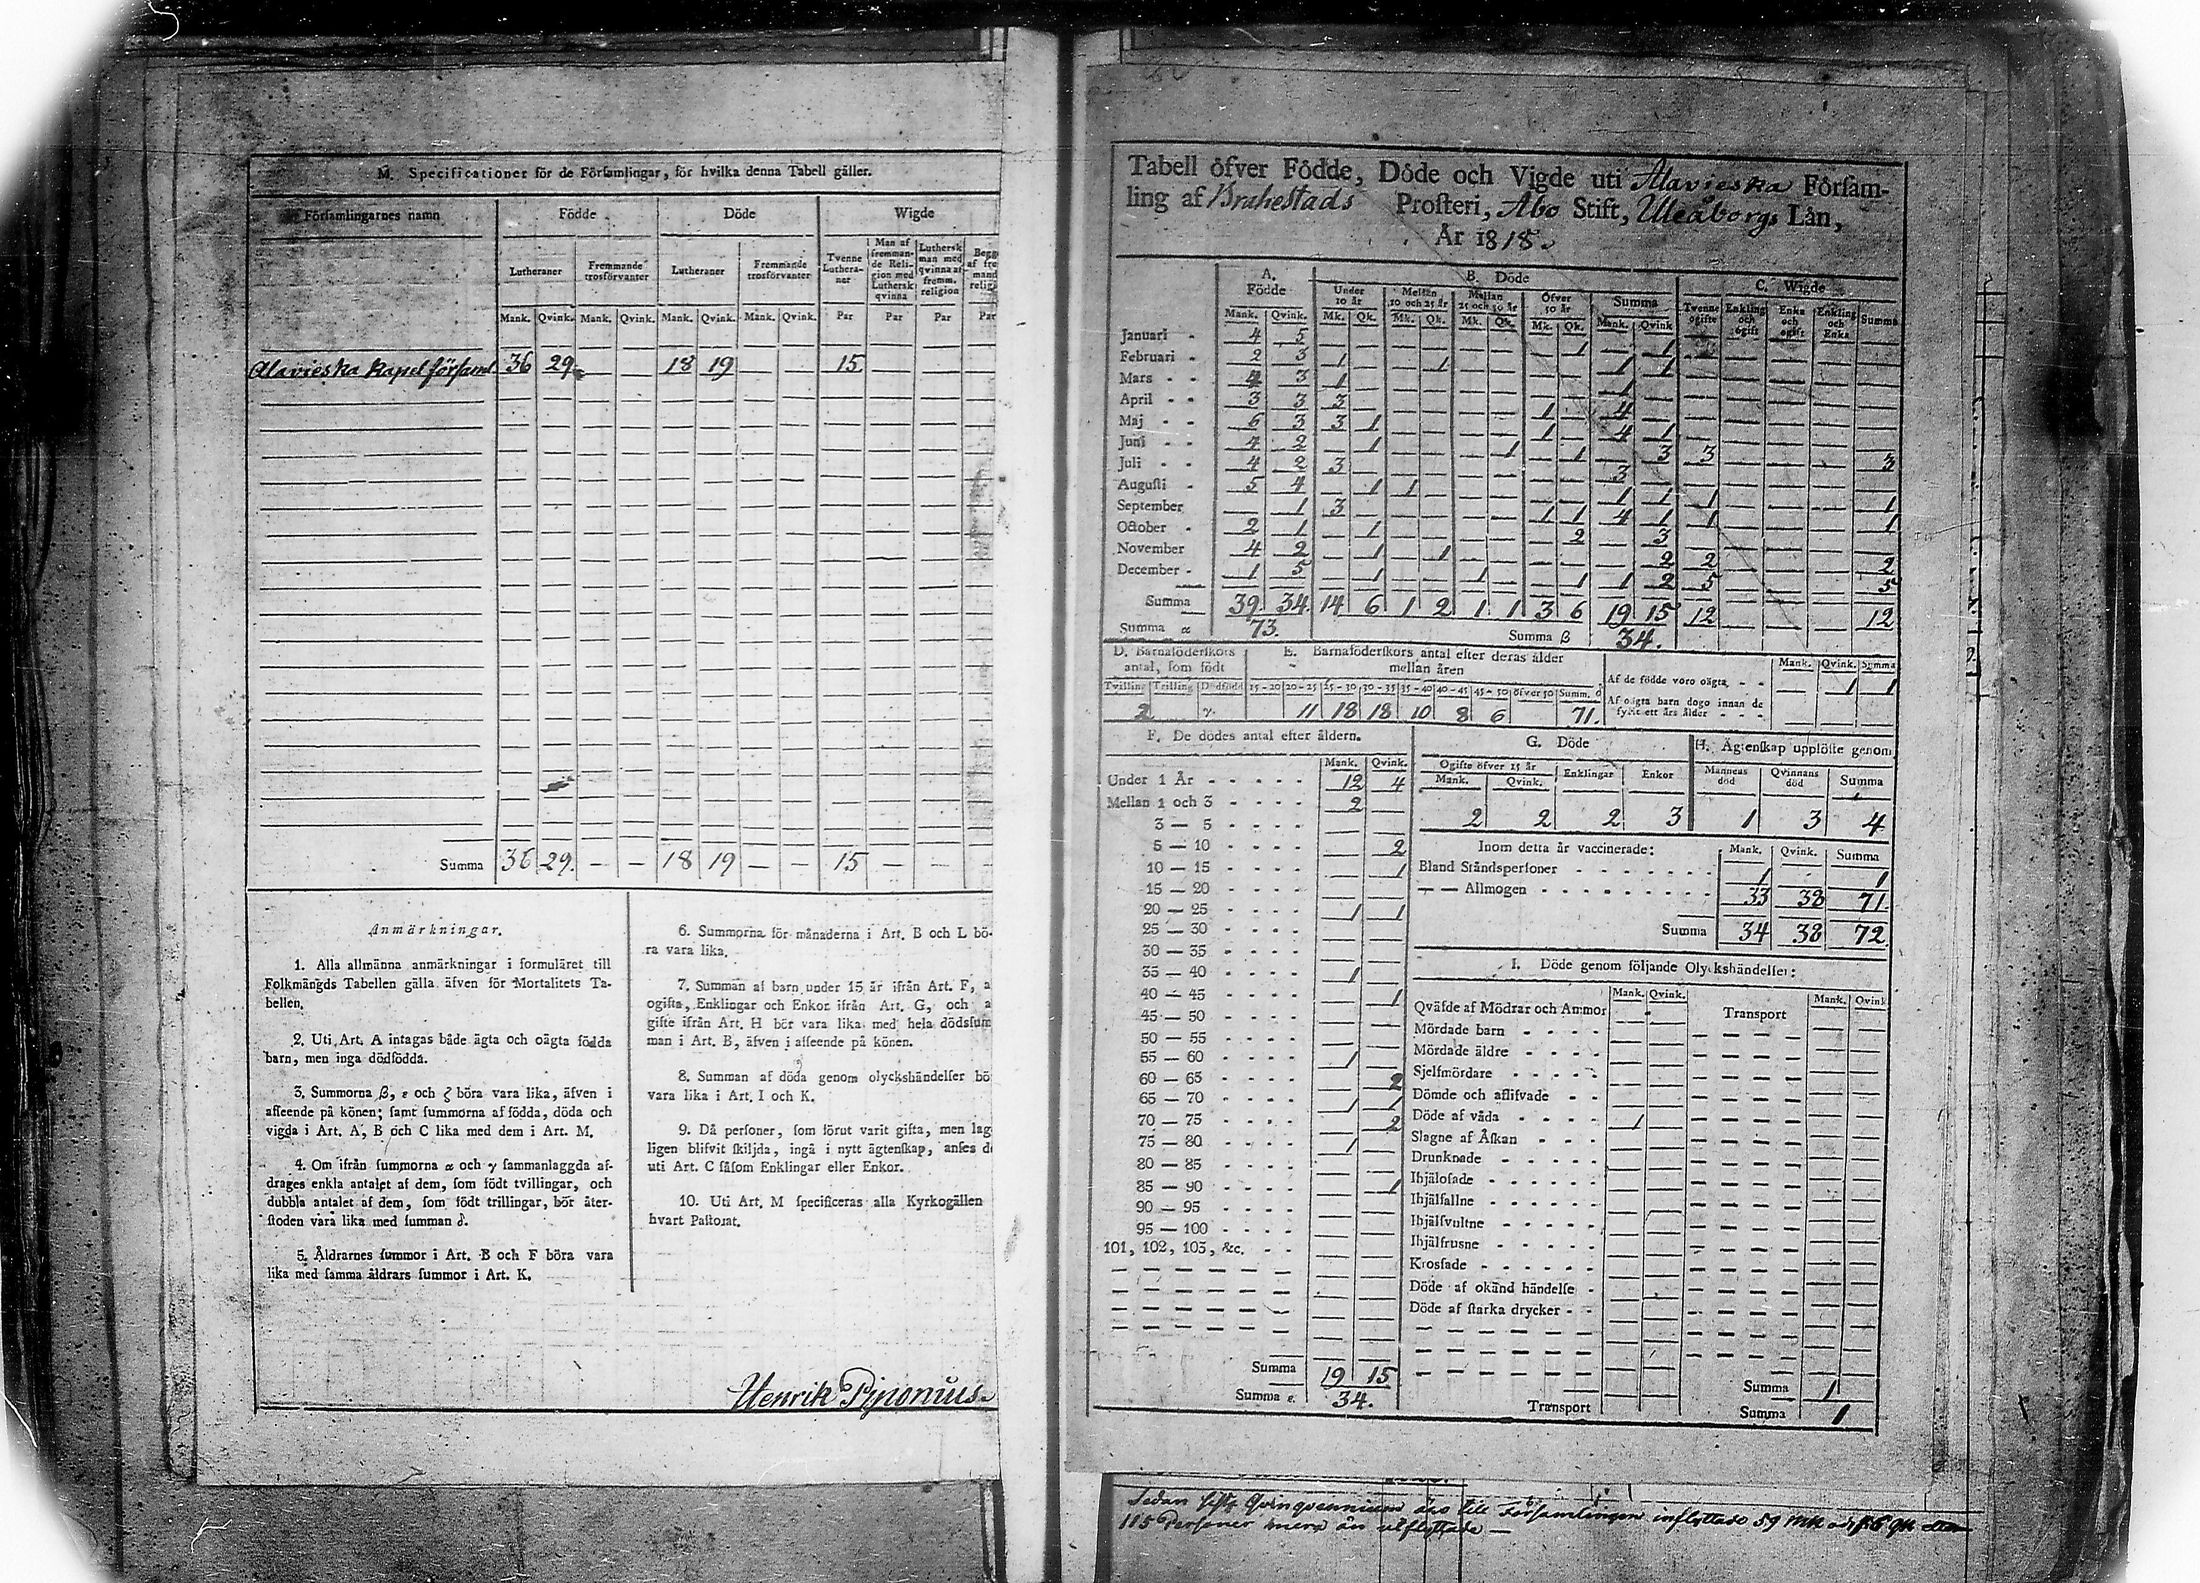 M. Specificationer för de Församlingar, för hvilka denna Tabell gäller.
Församlingarnes namn Födde Döde Wigde
Lutheraner Fremmande trosförvanter Lutheraner Fremmande trosförvanter Tvenne Lutheraner Man af fremmande Religion med Luthersk qvinna Luthersk man med qvinna af fremm. religion
Mank. Qvink. Mank. Qvink. Mank. Qvink. Mank. Qvink. Par Par Par Par
Alavieska Kapel församl. 36 29 — — 18 19 — — 15 — —
Summa 36 29. — — 18 19 — — 15 — —
Anmärkningar.
1. Alla allmänna anmärkningar i formuläret till
Folkmängds Tabellen gälla äfven för Mortalitets Ta-
bellen.
2. Uti Art. A intagas både ägta och oägta födda
barn, men inga dödfödda.
3. Summorna β, ε och ζ böra vara lika, äfven i
afseende på könen; samt summorna af födda, döda och
vigda i Art. A, B och C lika med dem i Art. M.
4. Om ifrån summorna α och γ sammanlaggda af-
drages enkla antalet af dem, som födt tvillingar, och
dubbla antalet af dem, som födt trillingar, bör åter-
stoden vara lika med summan δ.
5. Åldrarnes summor i Art. B och F böra vara
lika med samma åldrars summor i Art. K.
6. Summorna för månaderna i Art. B och L bö-
ra vara lika.
7. Summan af barn under 15 år ifrån Art. F, a
ogifta, Enklingar och Enkor ifrån Art. G, och a
gifte ifrån Art. H bör vara lika med hela dödssum
man i Art. B, äfven i afseende på könen.
8. Summan af döda genom olyckshändelser bö
vara lika i Art. I och K.
9. Då personer, som förut varit gifta, men lag
ligen blifvit skiljda, ingå i nytt ägtenskap, anses de
uti Art. C såsom Enklingar eller Enkor.
10. Uti Art. M specificeras alla Kyrkogällen
hvart Pastorat.
Henrik Pjponius.
Tabell öfver Födde, Döde och Vigde uti Alavieska Församling
af Brahestads Prosteri, Åbo Stift, Uleåborgs Län,
År 1818.
A. Födde B. Döde C. Wigde
Under 10 år Mellan 10 och 25 år Mellan 25 och 50 år Öfver 50 år Summa Tvenne ogifte Enkling och ogift Enka och ogift Enkling och Enka Summa
Mank. Qvink. Mk. Qk. Mk. Qk. Mk. Qk. Mk. Qk. Mank. Qvink
Januari - 4 5 — — — — — — — 1 — 1
Februari - 2 3 1 — — 1 — — — — 1 1
Mars - - 4 3 1 — — — — — — — 1 —
April - - 3 3 3 — — — — — 1 — 4 —
Maj - - 6 3 3 1 — — — — 1 — 4 1
Juni - - 4 2 — 1 — — — 1 — 1 — 3 3 — — — 3
Juli - - 4 2 3 — — — — — — — 3 —
Augusti - 5 4 — 1 1 — — — — — 1 1 1 — — — 1
September — 1 3 — — — — — 1 1 4 1 1 — — — 1
October - 2 1 — 1 — — — — — 2 — 3
November 4 2 — 1 — 1 — — — — — 2 2 — — — 2
December - 1 5 — 1 — — 1 — — 1 1 2 5 — — — 5
Summa 39. 34. 14 6 1 2 1 1 3 6 19 15 12 — — — 12
Summa α 73. Summa β 34.
D. Barnaföderskors antal, som födt
Tvilling Trilling Dödfödd
2 γ.
E. Barnaföderskors antal efter deras ålder mellan åren
15-20 20-25 25-30 30-35 35-40 40-45 45-50 öfver 50 Summ. δ
11 18 18 10 8 6 71.
Mank. Qvink. Summa
Af de födde voro oägta - - — 1 1
Af oägta barn dogo innan de
fyllt ett års ålder - - - — — —
F. De dödes antal efter åldern.
Mank. Qvink.
Under 1 År - - - - - 12 4
Mellan 1 och 3 - - - - 2 —
3 — 5 - - - - — —
5 — 10 - - - - — 2
10 — 15 - - - - — 1
15 — 20 - - - - — —
20 — 25 - - - - 1 1
25 — 30 - - - - — —
30 — 35 - - - - — —
35 — 40 - - - - 1 —
40 — 45 - - - - — 1
45 — 50 - - - - — —
50 — 55 - - - - — —
55 — 60 - - - - 1 —
60 — 65 - - - - — 2
65 — 70 - - - - 1 1
70 — 75 - - - - — 2
75 — 80 - - - - 1 —
80 — 85 - - - - — —
85 — 90 - - - - — 1
90 — 95 - - - - — —
95 — 100 - - - - — —
101, 102, 103, &c. - - — —
Summa 19 15
Summa ε. 34.
G. Döde
Ogifte öfver 15 år Enklingar Enkor
Mank. Qvink.
2 2 2 3
H. Ägtenskap upplöste genom
Mannens död Qvinnans död Summa
1 3 4
Inom detta år vaccinerade: Mank. Qvink. Summa
Bland Ståndspersoner - - - - - - - 1 — 1
— — Allmogen - - - - - - - - 33 38 71.
Summa 34 38 72
I. Döde genom följande Olyckshändelser:
Mank. Qvink. Mank. Qvink
Qväfde af Mödrar och Ammor Transport
Mördade barn - - - -
Mördade äldre - - - -
Sjelfmördare - - - - -
Dömde och aflifvade - -
Döde af våda - - - - 1
Slagne af Åskan - - -
Drunknade - - - - -
Ihjälosade - - - - -
Ihjälfallne - - - - -
Ihjälsvultne - - - -
Ihjälfrusne - - - - -
Krossade - - - - - -
Döde af okänd händelse -
Döde af starka drycker - -
Summa 1 —
Transport Summa 1
Sedan sista Qvinqvennium äro till Församlingen inflyttade 59 Mk och 56 Qk
115 Personer mera än utflyttade —